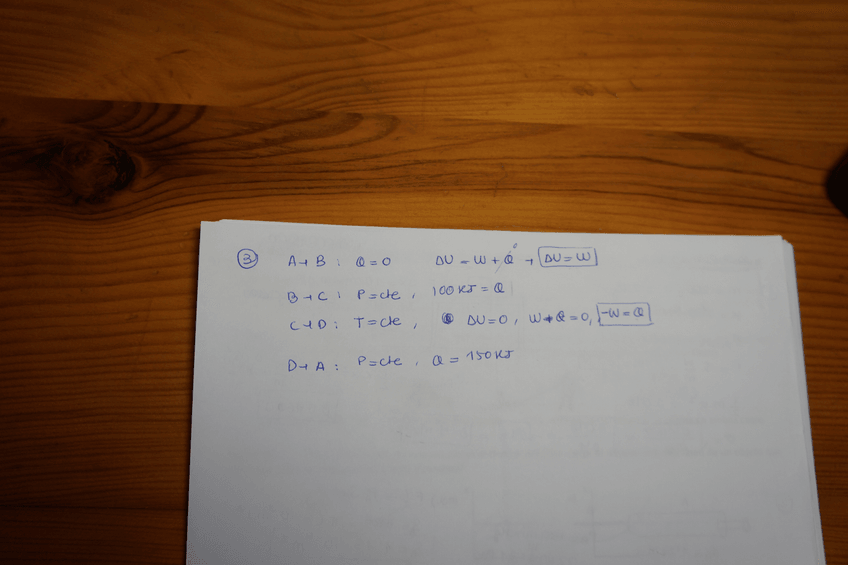 ③ A→B: Q=0 ΔU = W + Q⁰ → ΔU = W
B→C: P=cte, 100KJ = Q
C→D: T=cte, ΔU=0, W+Q=0, -W=Q
D→A: P=cte, Q = 150KJ